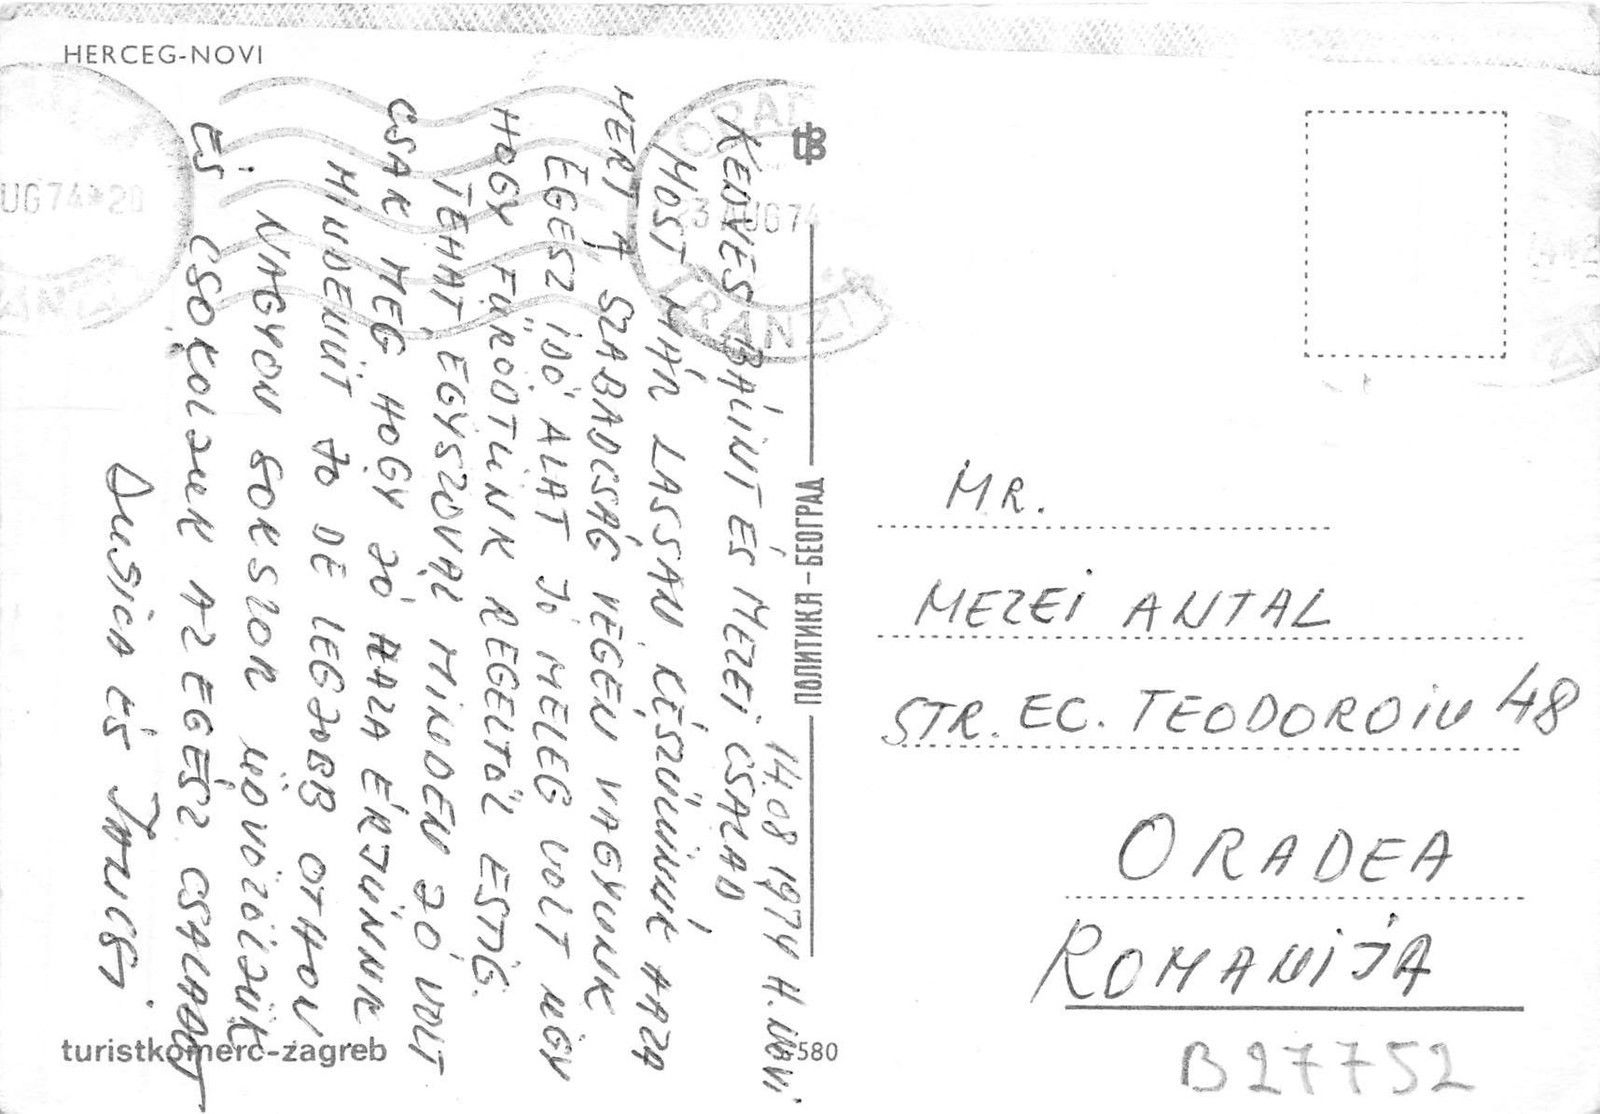 HERCEG-NOVI
14.08 1974 H. NOVI
KEDVES BÁLINT ÉS MEZEI CSALAD
MOST MÁR LASSAN KÉSZÜLÜNK HAZA
MERT A SZABADCSÁG VÉGÉN VAGYUNK
EGESZ IDÖ ALAT JO MELEG VOLT UGY
HOGY FÜRÖDTÜNK REGELTÖL ESTIG.
TEHAT EGYSZOVAL MINDEN JO VOLT
CSAK MEG HOGY JÓ HAZA ÉRJÜNNK
MINDENÜT JO DE LEGJOBB OTHON
NAGYON SOKSZOR ÜDVÖZÖLJÜK
ES CSOKOLJUK AZ EGÉSZ CSALADOT
DUSICA ÉS JANCSI.
ПОЛИТИКА – БЕОГРАД
turistkomerc-zagreb
580
UG74*20
3 AUG74
TRANZIT
MR.
MEZEI ANTAL
STR. EC. TEODOROIU 48
ORADEA
ROMANIJA
B 27752